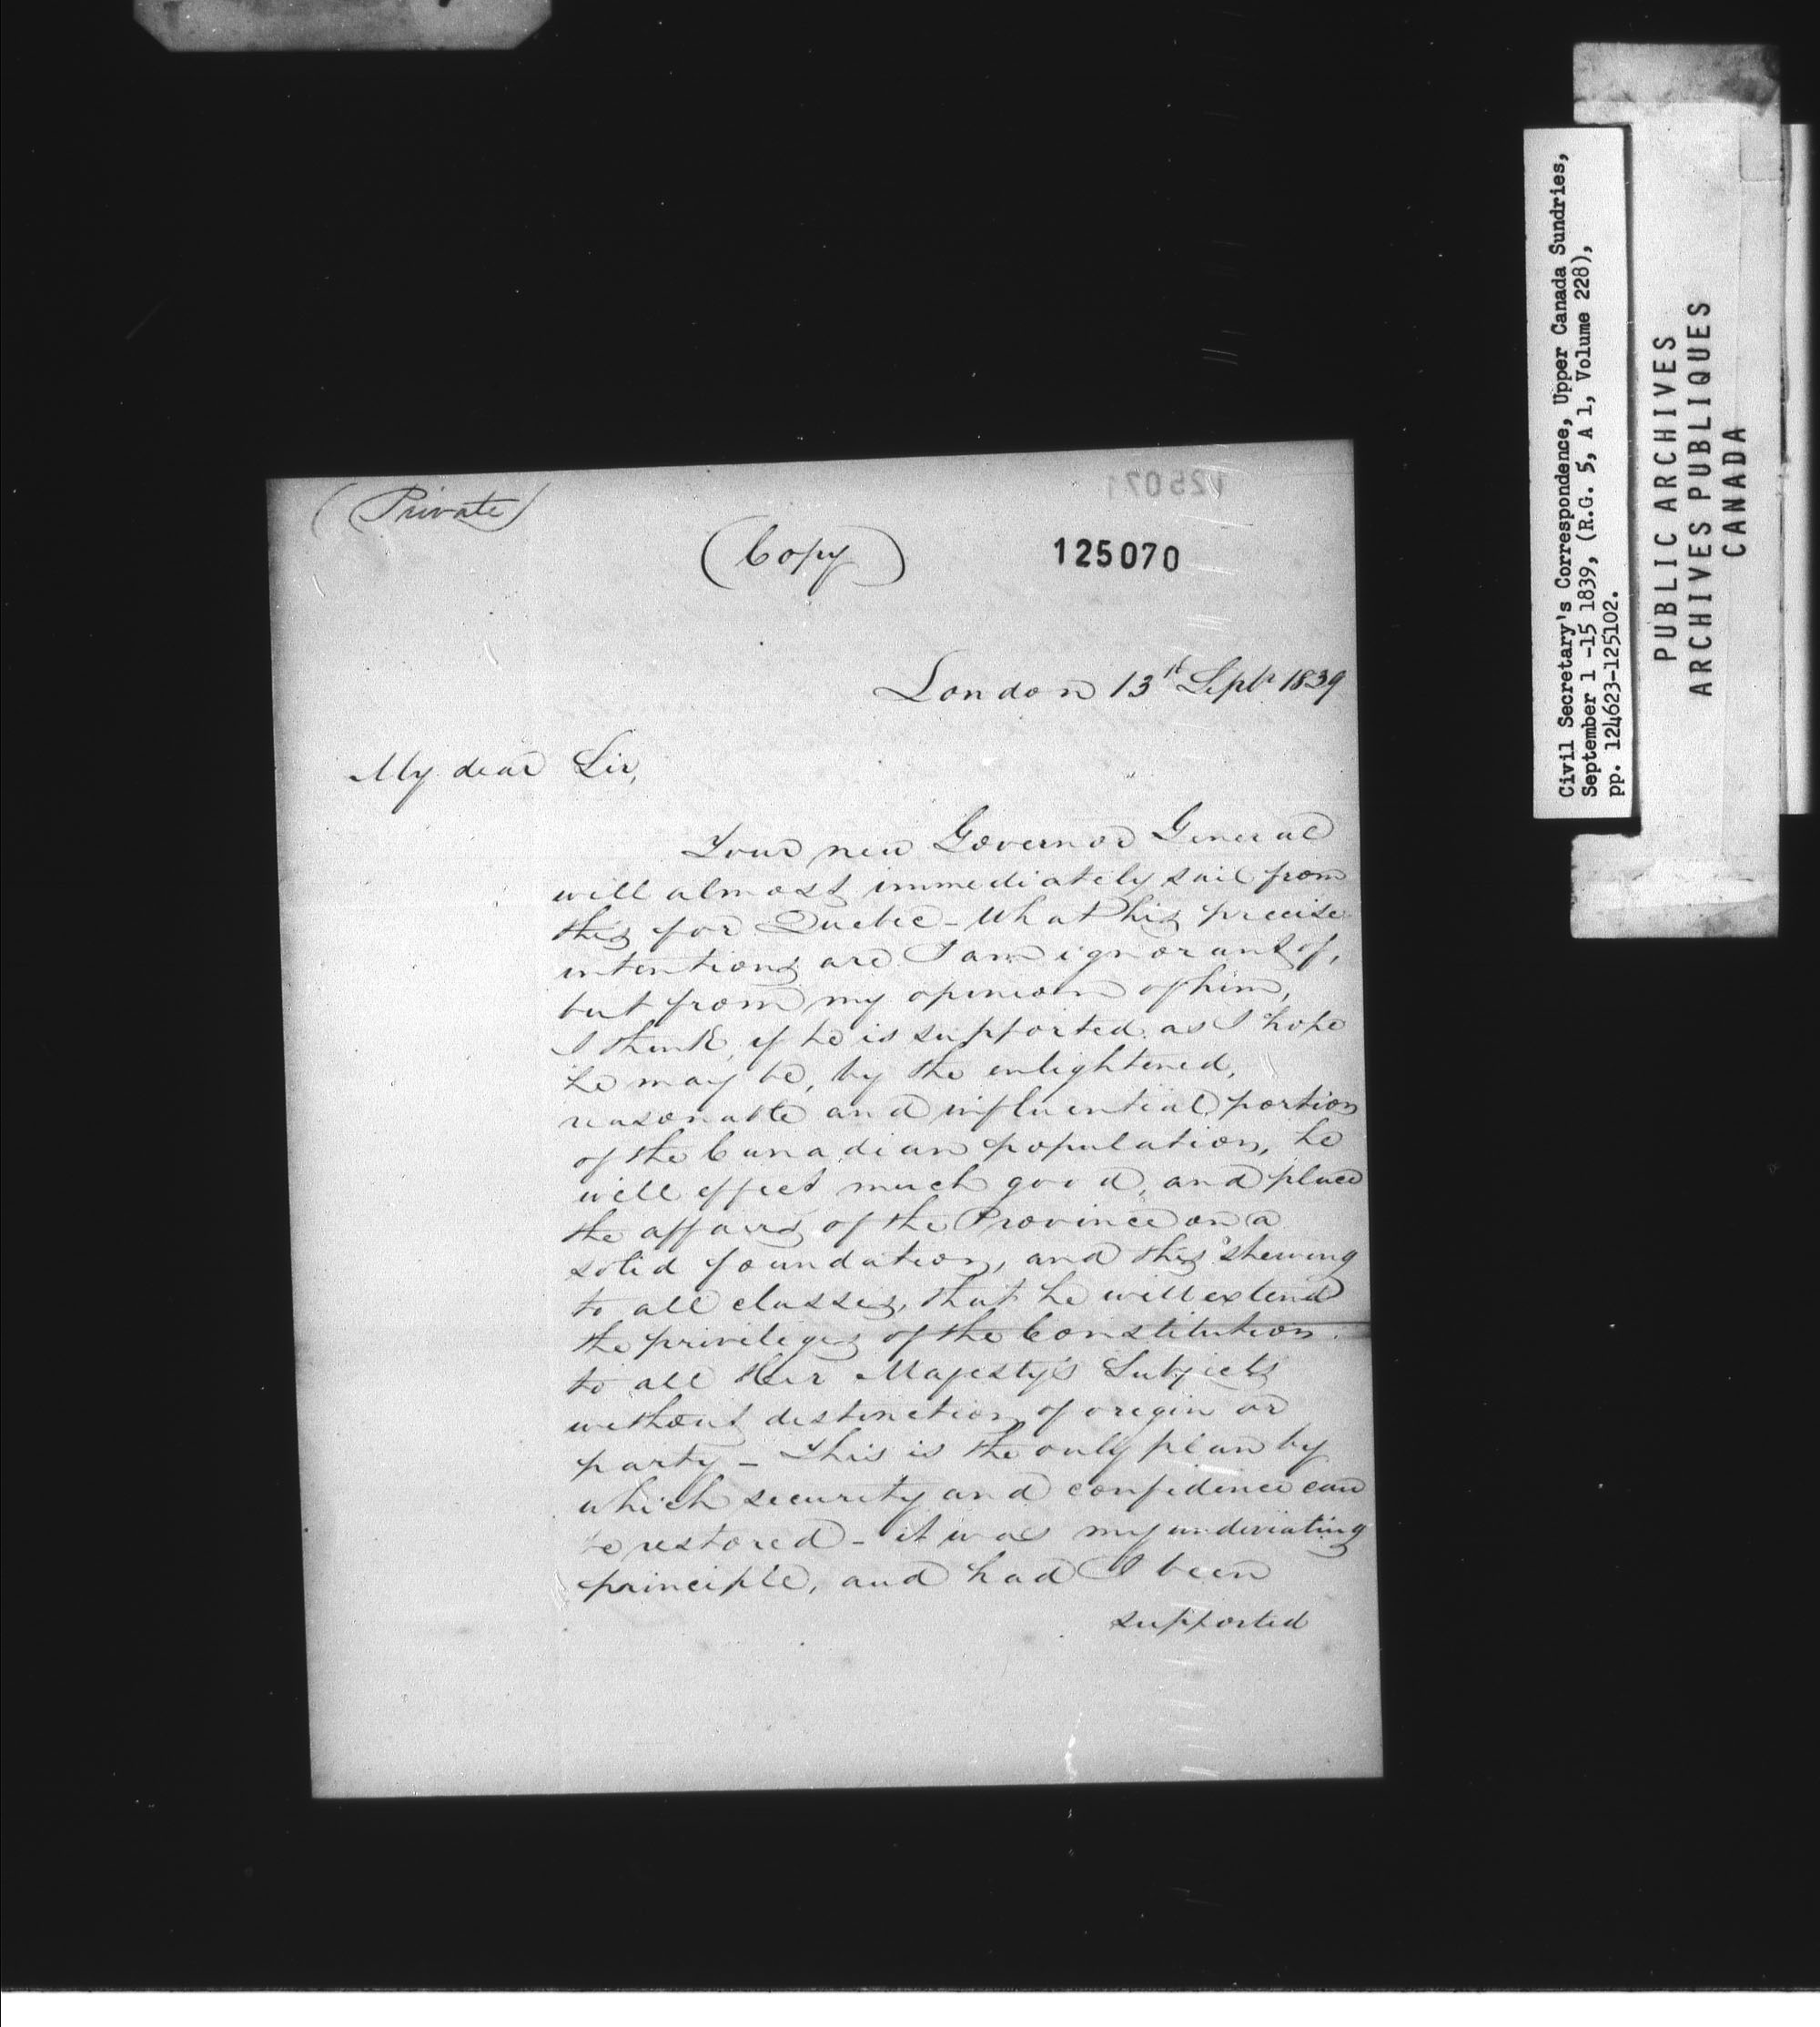 (Private)
(Copy)
125070
125071
London 13th Septr 1839
My dear Sir,
Your new Governor General
will almost immediately sail from
this for Quebec - What his precise
intentions are I am ignorant of,
but from my opinion of him,
I think, if he is supported as I hope
he may be, by the enlightened,
reasonable and influential portion
of the Canadian population, he
will effect much good, and place
the affairs of the Province on a
solid foundation, and this shewing
to all classes, that he will extend
the privileges of the Constitution
to all Her Majesty's Subjects
without distinction of origin or
party - This is the only plan by
which security and confidence can
be restored - it was my undeviating
principle, and had I been
supported
Civil Secretary's Correspondence, Upper Canada Sundries,
September 1 -15 1839, (R.G. 5, A 1, Volume 228),
pp. 124623-125102.
PUBLIC ARCHIVES
ARCHIVES PUBLIQUES
CANADA